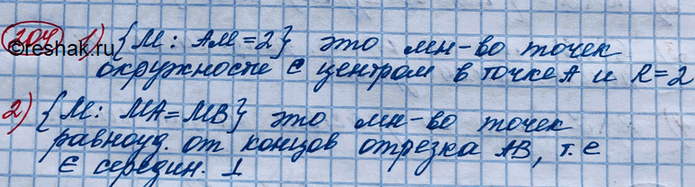 204 1) {M: AM=2} это мн-во точек
©reshak.ru
окружности с центром в точке A и R=2
2) {M: MA=MB} это мн-во точек
равноуд. от концов отрезка AB, т.е
∈ середин. ⊥